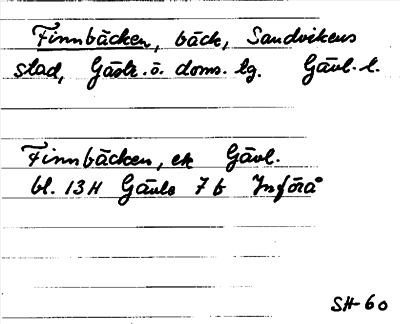 Finnbäcken, bäck, Sandvikens
stad, Gästr. ö. doms. lg. Gävl. l.
Finnbäcken, ek Gävl.
bl. 13H Gävle 7 b Införå
SH-60